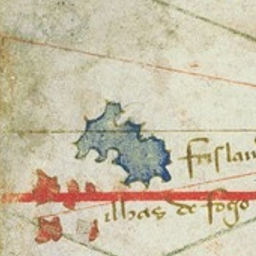 frislan
ilhas de fogo